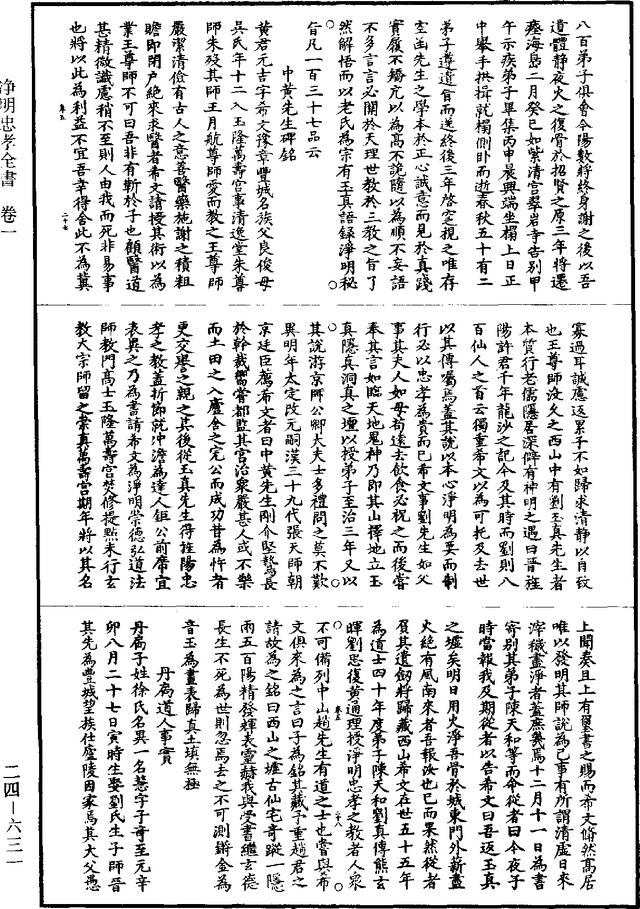 八百弟子俱會今陽數將終身謝之後以吾
遺體靜夜火之復骨於招賢之原三年將還
瘞海島二月癸巳如紫清宮翠岩寺告别甲
午示疾弟子畢集丙申晨興端坐榻上日正
中舉手拱揖就榻側卧而逝春秋五十有二
弟子遵遺旨而送終後三年啓窆視之唯存
空函先生之學本於正心誠意而見於真踐
實履不矯亢以為高不詭隨以為順不妄語
不多言言必關於天理世教於三教之旨了
然解悟而以老氏為宗有玉真語録淨明秘
旨凡一百三十七品云
中黄先生碑銘
黄君元吉字希文豫章豐城名族父良俊母
吳氏年十二入玉隆萬壽宮事清逸堂朱尊
師朱殁其師王月航尊師愛而教之王尊師
嚴潔清儉有古人之意善醫藥施謝之積粗
贍即閉户絶來求醫者希文請授其術以為
業王尊師不可曰吾非有靳於子也顧醫道
甚精微識慮稍不至則人由我而死非易事
也將以此為利益不宜吾幸得舍此不為冀
寡過耳誠慮返累子不如歸求清靜以自致
也王尊師没久之西山中有劉玉真先生者
本質行老儒隱居深僻有神明之遇曰晉旌
陽許君千年龍沙之記今及其時而劉則八
百仙人之首云獨重希文以為可托及去世
以其傳囑焉蓋其說以本心淨明為要而制
行必以忠孝為貴而已希文事劉先生如父
事其夫人如母苟遠去飲食必祝之而後嘗
奉其言如臨天地鬼神乃即其山擇地立玉
真隱真洞真之壇以授弟子至治三年又以
其說游京師公卿大夫士多禮問之莫不歎
異明年太定改元嗣漢三十九代張天師朝
京廷臣薦希文者曰中黄先生剛介堅鷙長
於幹裁嘗都監其宮治衆嚴甚人或不樂
而土田之入廬舍之完公而成功昔為忤者
更交譽之親之其後從玉真先生得旌陽忠
孝之教蓋折節就沖澹為達人鉅公前席宜
表異之乃為書請希文為淨明崇德弘道法
師教門高士玉隆萬壽宮焚修提㸃未行玄
教大宗師留之崇真萬壽宮期年將以其名
上聞奏且上有璽書之賜而希文翛然高居
唯以發明其師說為己事有所謂清虛日來
滓穢盡淨者蓋庶幾焉十二月十一日為書
寄别其弟子陳天和等而命從者曰今夜子
時當報我及期從者以告希文曰吾返玉真
之墟矣明日用火淨吾骨於城東門外薪盡
火絶有風南來者吾報汝也已而果然從者
負其遺劒將歸藏西山希文在世五十五年
為道士四十年度弟子陳天和劉真傳熊玄
暉劉思復黄通理授淨明忠孝之教者人衆
不可備列中山趙先生有道之士也嘗與希
文俱來為之言曰子為銘其藏予重趙君之
請故為之銘曰西山之墟古仙宅奇蹤一隱
兩五百陽精發輝表靈赫我與受書繼玄德
長生不死為世則忽焉去之不可測鏘金為
音玉為畫表歸真土填無極
丹扃道人事實
丹扃子姓徐氏名異一名慧字子奇至元辛
卯八月二十七日寅時生娶劉氏生子師晉
其先為豐城望族仕廬陵因家焉其大父愚
淨明忠孝全書 卷一
二四—六三一